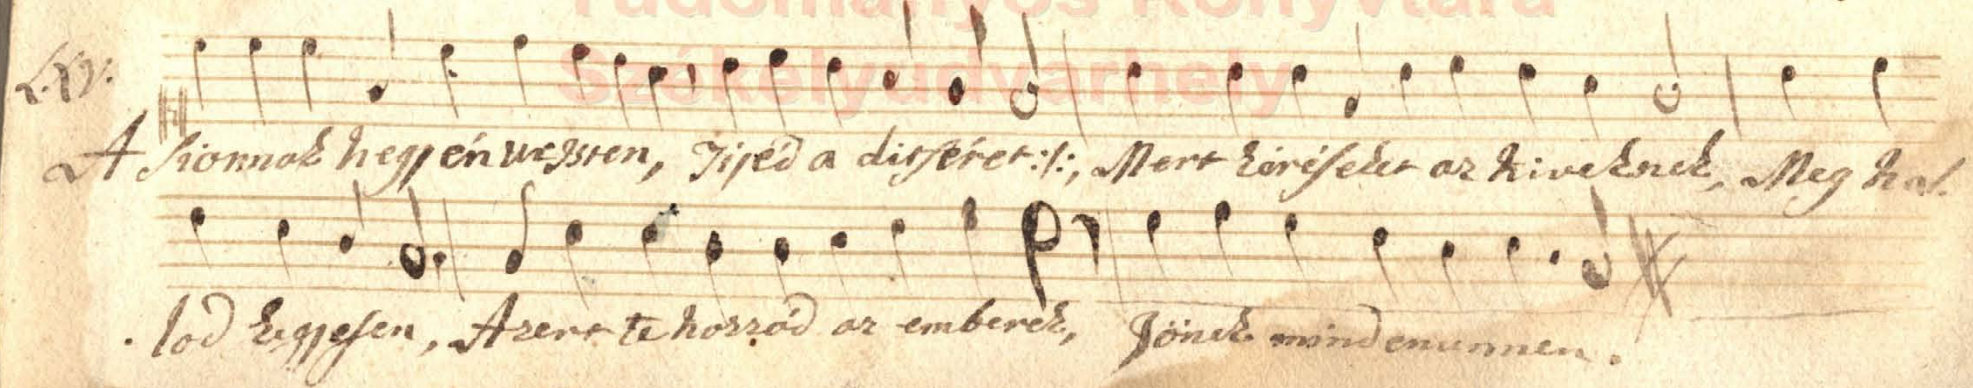 Tudományos Könyvtára
Székelyudvarhely
LXV:
A Sionnak hegyén ur Isten, Tijéd a ditséret:/:, Mert kéréseket az hiveknek, Meg hal-
lod kegyesen, Azert te hozzád az emberek, Jönek mindenunnen.